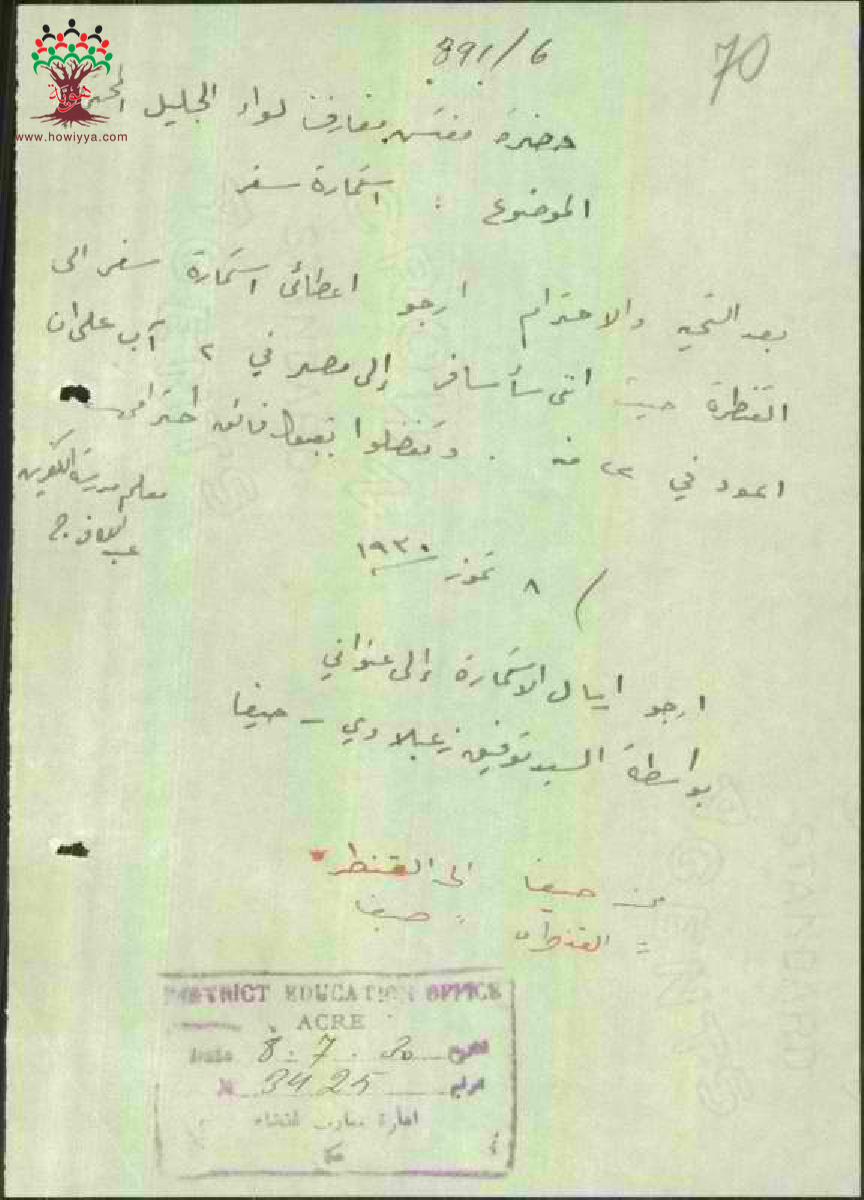 891/6
70
هوية
www.howiyya.com
حضرة مفتش معارف لواء الجليل المحترم
الموضوع : استمارة سفر
بعد التحية والاحترام ارجو اعطائي استمارة سفر الى
القنطرة حيث انني سأسافر إلى مصر في ٢ آب على ان
اعود في ٢٠ منه . وتفضلوا بقبول فائق احترامي
معلم مدرسة
٨ تموز ١٩٣٠
ارجو ارسال الاستمارة إلى عنواني
بواسطة السيد توفيق زعبلاوي - حيفا
من حيفا الى القنطرة
= القنطرة = حيفا
DISTRICT EDUCATION OFFICE
ACRE
Date 8.7.30 التاريخ
N 3425 الرقم
ادارة معارف قضاء
عكا